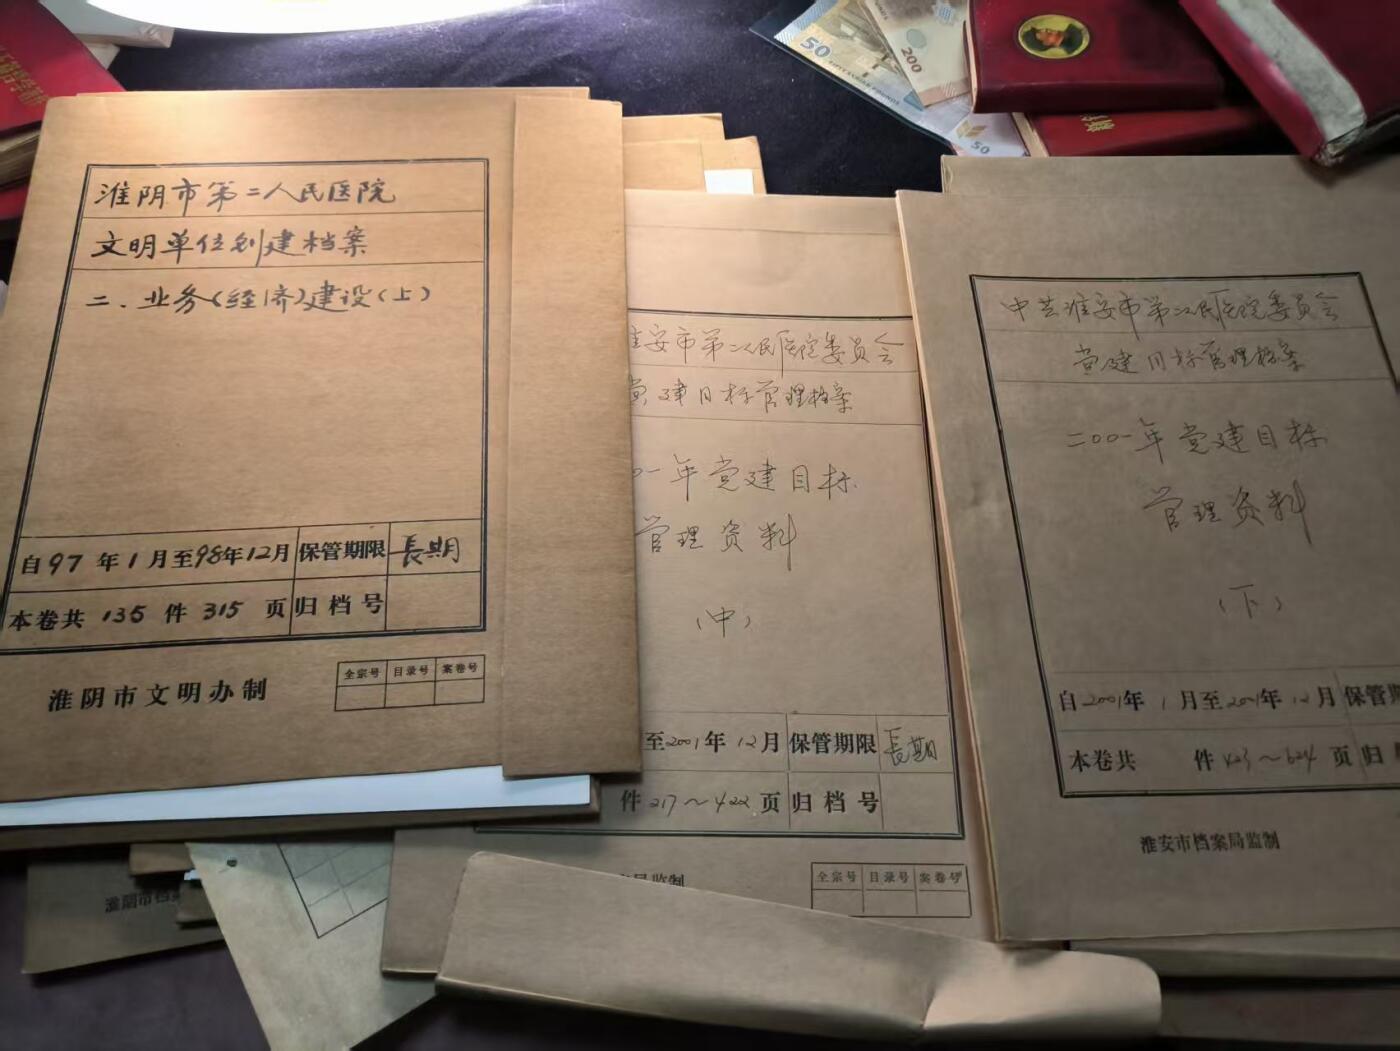 淮阴市第二人民医院
文明单位创建档案
二、业务(经济)建设(上)
自97年1月至98年12月 保管期限 長期
本卷共135件315页 归档号
全宗号 目录号 案卷号
淮阴市文明办制
淮安市第二人民医院委员会
党建目标管理档案
01年党建目标
管理资料
(中)
至2001年12月 保管期限 長期
件217~422页 归档号
局监制
全宗号 目录号 案卷号
中共淮安市第二人民医院委员会
党建目标管理档案
二00一年党建目标
管理资料
(下)
自2001年1月至2001年12月 保管期
本卷共 件423~624页 归
淮安市档案局监制
淮阴市档案
50
FIFTY
POUNDS
200
50